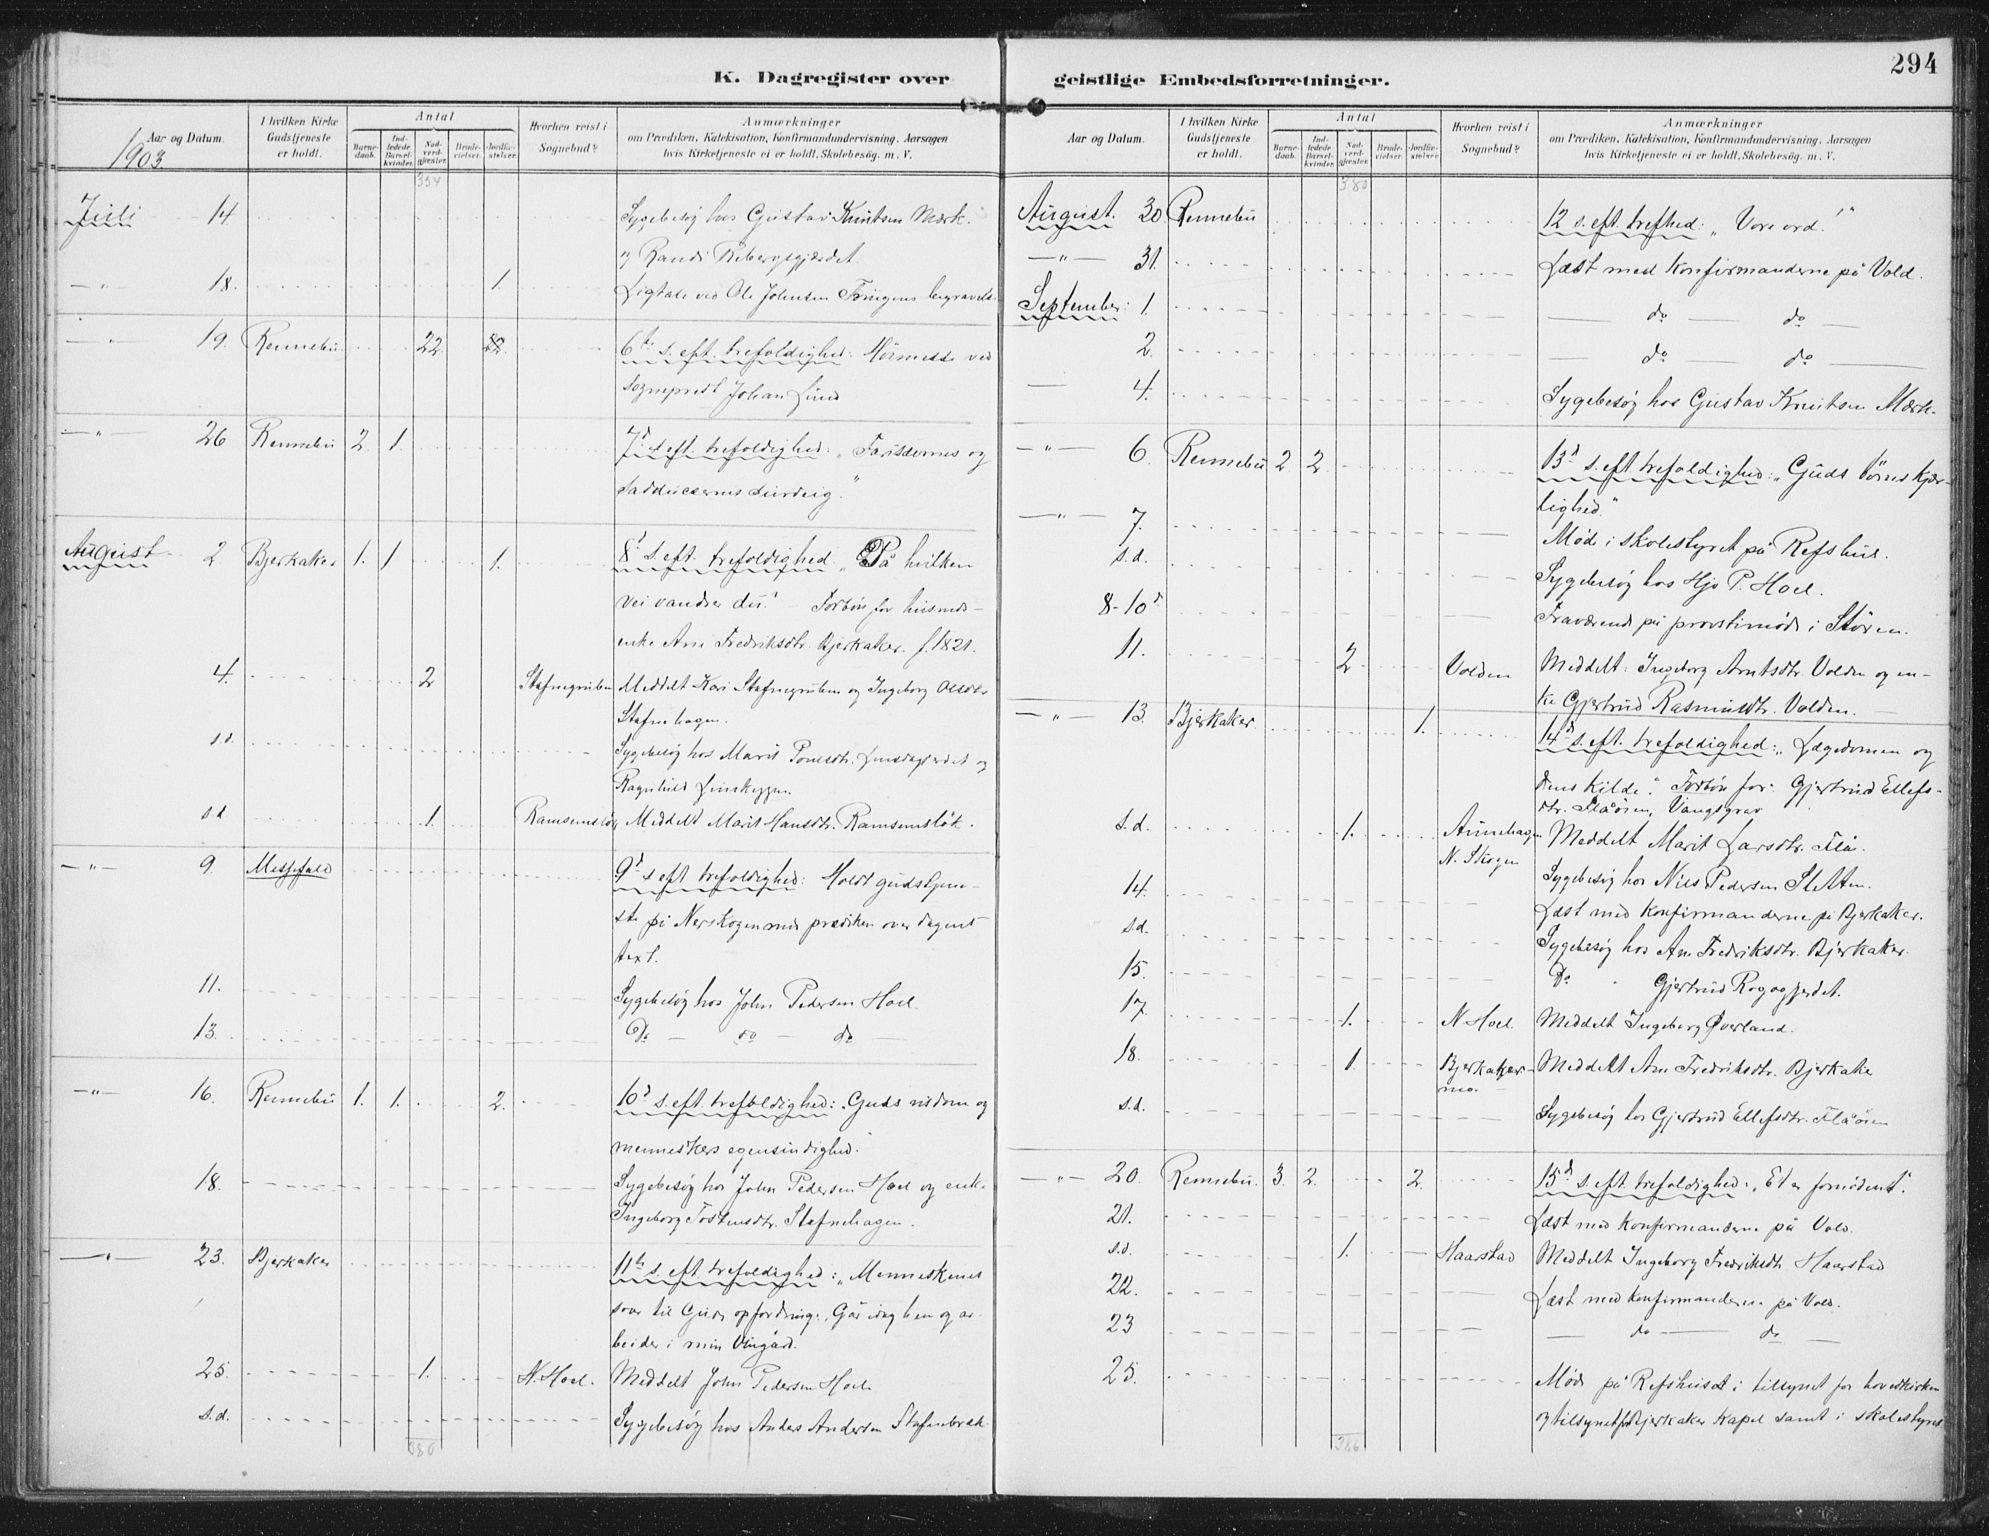 294
K. Dagregister over
geistlige Embedsforretninger.
Aar og Datum.
1903.
I hvilken Kirke Gudstjeneste er holdt.
Antal
Barnedaab.
Indledede Barselkvinder.
Nadverdgjester.
Brudevielser.
Jordfæstelser.
Hvorhen reist i Sognebud?
Anmærkninger
om Prædiken, Katekisation, Konfirmandundervisning, Aarsagen
hvis Kirketjeneste ei er holdt, Skolebesøg. m. V.
354
Juli 14. Sygebesøg hos Gustav Knutsen Mærk.
og Randi Rebergsgjærdet.
—"— 18. 1. Ligtale ved Ole Johnsen begravels.
" 19. Rennebu 22 6te s. eft. trefoldighed: Høimesse ved
sogneprest Johan Lund
—"— 26 Rennebu 2. 1. 7d s. eft. trefoldighed: „Farisæernes og
sadducæernes surdeig."
August 2 Bjerkaker 1. 1 1. 8d s. eft. trefoldighed „På hvilken
vei vandrer du." – Forbøn for husmds-
enke Ane Fredriksdtr. Bjerkaker. f. 1821.
4. 2 Stafnegruben Meddelt Kari Stafnegruben og Ingeborg Olsdtr
Stafnehagen.
s.d. Sygebesøg hos Marit gjerdet og
Ragnhild
s.d 1. Meddelt Marit Hansdtr. Ramsemsløk.
—"— 9. Messefald 9d s. eft. trefoldighed: Holdt gudstjene-
ste på Nerskogen med prædiken over dagens
text.
11. Sygebesøg hos John Pedersen Hoel.
13. Do — do — do —
—"— 16. Rennebu 1. 1. 2. 10d s. eft. trefoldighed: „Guds visdom og
menneskers egensindighed."
18. Sygebesøg hos John Pedersen Hoel og enke
Ingeborg Tostensdtr. Stafnehagen.
—"— 23. Bjerkaker 11te s. eft. trefoldighed: „Menneskenes
svar til Guds opfordring: Gå idag hen og ar-
beider i min Vingård.
25. 1. N. Hoel. Meddelt John Pedersen Hoel.
s.d. Sygebesøg hos Anders Andersen Stafnebrek
380
Aar og Datum.
I hvilken Kirke Gudstjeneste er holdt.
Antal
Barnedaab.
Indledede Barselkvinder.
Nadverdgjester.
Brudevielser.
Jordfæstelser.
Hvorhen reist i Sognebud?
Anmærkninger
om Prædiken, Katekisation, Konfirmandundervisning, Aarsagen
hvis Kirketjeneste ei er holdt, Skolebesøg. m. V.
380
August. 30. Rennebu 12 s. eft. trefhed: „Vore ord!"
—"— 31. Læst med konfirmanderne på Vold.
September: 1. — do — do —
2. — do — do —
— 4. Sygebesøg hos Gustav Knutsen Mærk.
—"— 6. Rennebu 2 2. 13d s. eft trefoldighed: „Guds børns kjær-
lighed."
—"— 7. Møde i skolestyret på Refshus.
s.d. Sygebesøg hos P. Hoel.
8-10d Fraværende på provstimøde i Støren.
11. 2 Volden Meddelt: Ingeborg Arntsdtr. Volden og en-
ke Gjertrud Rasmusdtr. Volden.
—"— 13. Bjerkaker 1. 14d s. eft. trefoldighed: „Lægedommen og
dens kilde." Forbøn for: Gjertrud Ellefs-
dtr. Flåøien, Vangsgrav
s.d. 1. Aunehagen N. Skogen Meddelt Marit Larsdtr. Flå.
14. Sygebesøg hos Nils Pedersen Sletten.
s.d. Læst med konfirmanderne på Bjerkaker.
Sygebesøg hos Ane Fredriksdtr. Bjerkaker.
15. Do " Gjertrud
17. 1. N Hoel. Meddelt Ingeborg Øverland.
18. 1. Bjerkaker-
mo. Meddelt Ane Fredriksdtr. Bjerkake
s.d. Sygebesøg hos Gjertrud Ellefsdtr. Flåøien
—"— 20. Rennebu. 3. 2. 2. 15d s. eft. trefoldighed: „Et er fornødent".
21. Læst med konfirmanderne på Vold.
s.d. 1. Haarstad Meddelt Ingeborg Fredriksdtr Haarstad
22. Læst med konfirmanderne på Vold.
23 — do — do —
25. Møde på Refshuset i tilsynet for hovedkirken
og tilsynet for Bjerkaker kapel samt i skolestyret
386